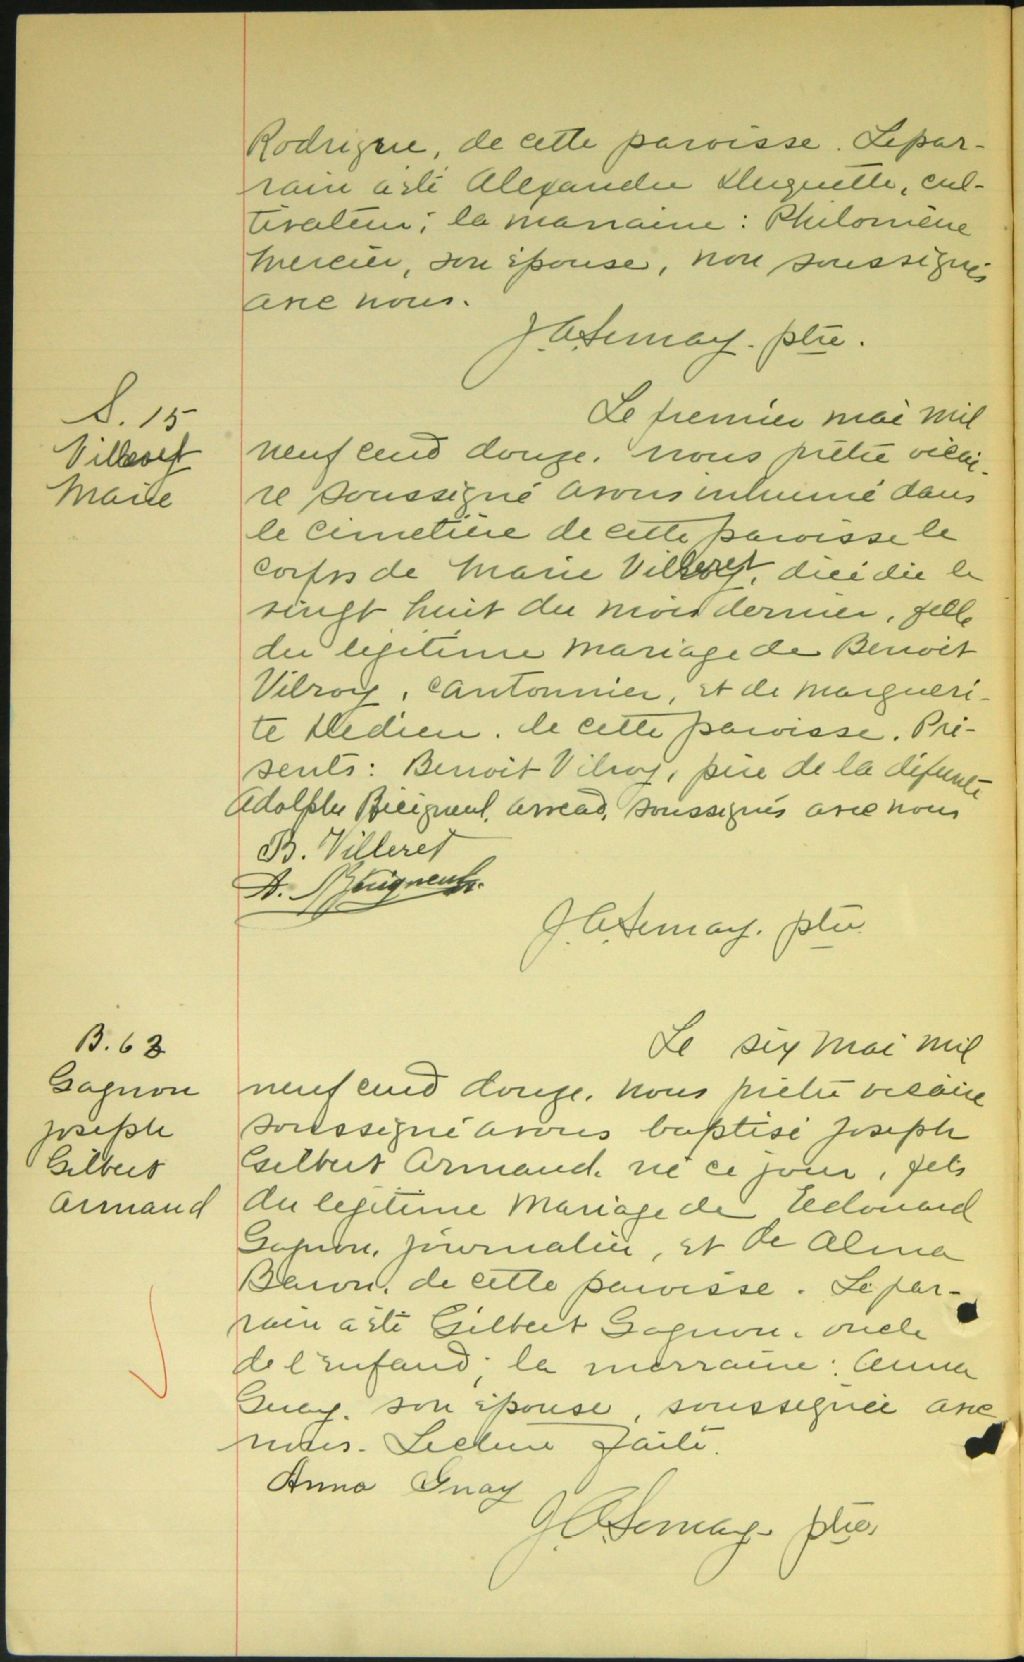 Rodrigue, de cette paroisse. Le par-
rain a été Alexandre Huguette, cul-
tivateur; la marraine: Philomène
Mercier, son épouse, non soussignés
avec nous.
J. A. Lemay. ptre.
S. 15
Villeret
Marie
Le premier mai mil
neuf cend douze. nous prêtre vicai-
re soussigné avons inhumé dans
le cimetière de cette paroisse le
corps de Marie Villeret, décédée le
vingt huit du mois dernier, fille
du légitime mariage de Benoit
Vilroy, cantonnier, et de Margueri-
te Dedieu. de cette paroisse. Pré-
sents: Benoit Vilroy, père de la défunte
Adolphe soussignés avec nous
B. Villeret
A.
J. A. Lemay. ptre
B. 63
Gagnon
Joseph
Gilbert
Armand
Le six mai mil
neuf cend douze. nous prêtre vicaire
soussigné avons baptisé Joseph
Gilbert Armand. né ce jour, fils
du légitime mariage de Edouard
Gagnon, journalier, et de Alma
Baron. de cette paroisse. Le par-
rain a été Gilbert Gagnon. oncle
de l'enfand; la marraine: Anna
Guay. son épouse, soussignée avec
nous. Lecture faite.
Anna Guay
J. A. Lemay ptre